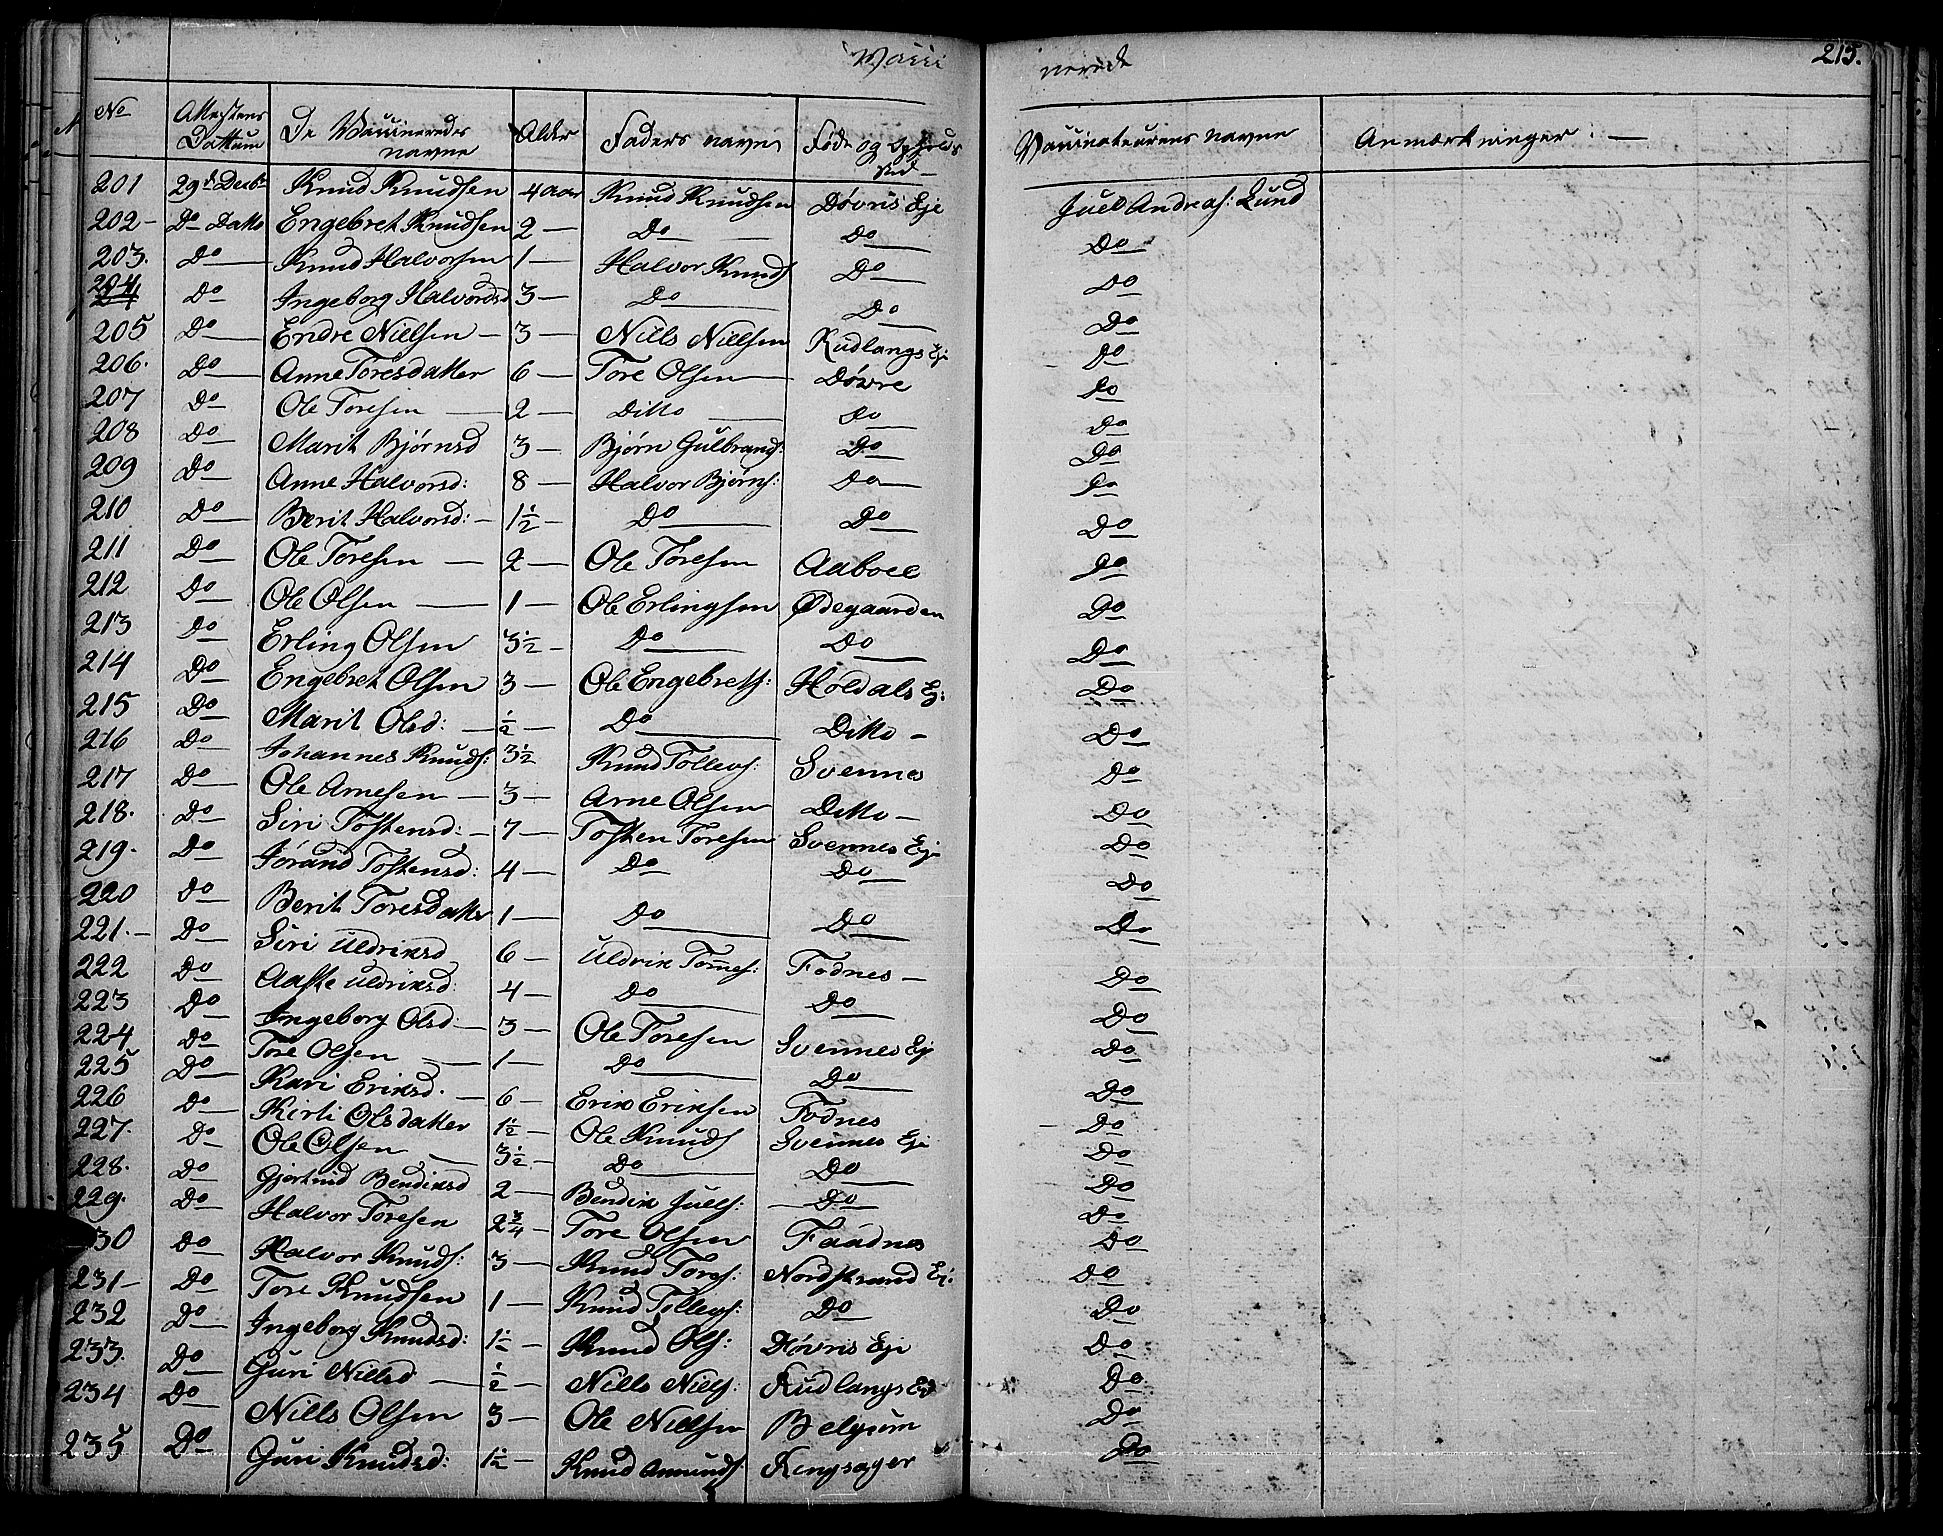 Vacci nerede 215.
No Attestens Dattum De Vaccineredes navne Alder Faders navn Føde og Opholds sted Vaccinateurens navne Anmærkninger: —
201 29de Decbr Knud Knudsen 4 aar Knud Knudsen Døvris Eje Juel Andreas: Lund
202 — Do Datto Engebret Knudsen 2 — Do — Do Do
203. Do Knud Halvorsen 1 — Halvor Knuds Do Do
204 Do Ingeborg Halvorsd 3 — Do Do Do
205 Do Endre Nielsen — 3 — Nills Nielsen Rudlangs Eje Do
206. Do Anne Toresdatter 6 — Tore Olsen Døvre Do
207 Do Ole Toresen — 2 — Ditto — Do Do
208 Do Marit Bjørnsd 3 — Bjørn Gulbrands: Do Do
209 Do Anne Halvorsd: 8 — Halvor Bjørns: Do Do
210 Do Berit Halvorsd: — 1½ — Do Do Do
211 Do Ole Toresen — 2 — Ole Toresen Aaboee Do
212 Do Ole Olsen — 1 — Ole Erlingsen Ødegaarden Do
213 Do Erling Olsen 3½ — Do Do Do
214 Do Engebret Olsen 3 — Ole Engebrets: Høldals Ej. Do
215 Do Marit Olsd: — ½ — Do Ditto — Do
216 Do Johannes Knuds: 3½ Knud Tollevs: Svennes Do
217 Do Ole Arnesen — 3 — Arne Olsen Ditto — Do
218. Do Siri Tostensd: — 7 — Tosten Toresen Svennes Eje Do
219. Do Jørand Tostensd: 4 — Do Do Do
220 Do Berit Toresdatter 1 — Do Do Do
221. — Do Siri Uldriksd 6 — Uldrik Tomes: Fodnes — Do
222 Do Aaste Uldriksd: 4 — Do Do Do
223 Do Ingeborg Olsd — 3 — Ole Toresen Svennes Eje Do
224 Do Tore Olsen — 1 — Do Do Do
225 Do Kari Eriksd. — 6 — Erik Eriksen Fodnes Do
226 Do Kirti Olsdatter 1½ — Ole Knuds Svennes Eje Do
227. Do Ole Olsen — 3½ — Do Do Do
228. Do Gjertrud Bendiksd 2 — Bendik Juels: Do Do
229. Do Halvor Toresen 2¾ — Tore Olsen Faadnes Do
230 Do Halvor Knuds: 3 — Knud Tores: Nordstrand Ej. Do
231 — Do Tore Knudsen 1 — Knud Tollevs: Do Do
232 Do Ingeborg Knudsd: 1½ — Knud Ols: Døvris Eje Do
233. Do Guri Nillsd — ½ — Nills Niels: Rudlangs Ed Do
234 Do Nills Olsen 3 — Ole Nielsen Belgum Do
235 Do Guri Knudsd: 1½ — Knud Amunds: Ringsager Do